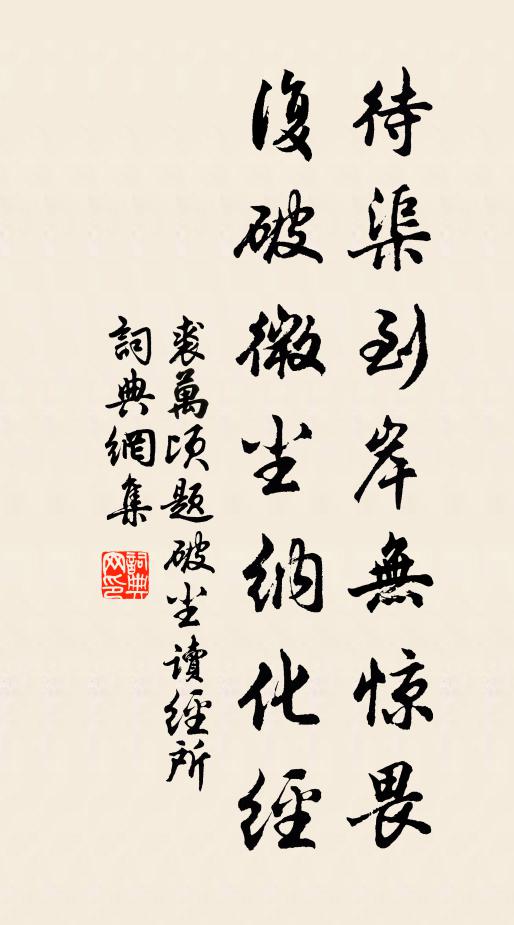 待渠到岸無惊畏
復破微尘納化經
裘萬頃題破尘讀經所
詞典網集
詞典网印